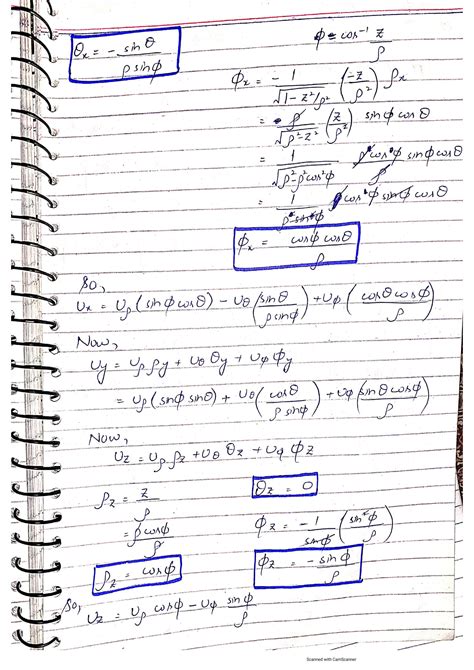 θx = - sinθ / ρ sinφ
φ = cos⁻¹ z/ρ
φx = - 1/√(1-z²/ρ²) (-z/ρ²) ρx
= ρ/√(ρ²-z²) (z/ρ²) sinφ cosθ
= 1/√(ρ²-ρ²cos²φ) ρcosφ/ρ sinφ cosθ
= 1/ρ sinφ cosφ sinφ cosθ
φx = cosφ cosθ / ρ
So,
Ux = Uρ (sinφ cosθ) - Uθ (sinθ / ρ sinφ) + Uφ (cosθ cosφ / ρ)
Now,
Uy = Uρ ρy + Uθ θy + Uφ φy
= Uρ (sinφ sinθ) + Uθ (cosθ / ρ sinφ) + Uφ (sinθ cosφ / ρ)
Now,
Uz = Uρ ρz + Uθ θz + Uφ φz
ρz = z/ρ
θz = 0
= ρ cosφ / ρ
φz = - 1/sinφ (sin²φ / ρ)
ρz = cosφ
φz = - sinφ / ρ
So,
Uz = Uρ cosφ - Uφ sinφ / ρ
Scanned with CamScanner